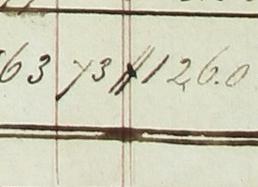 63 73 #126.0